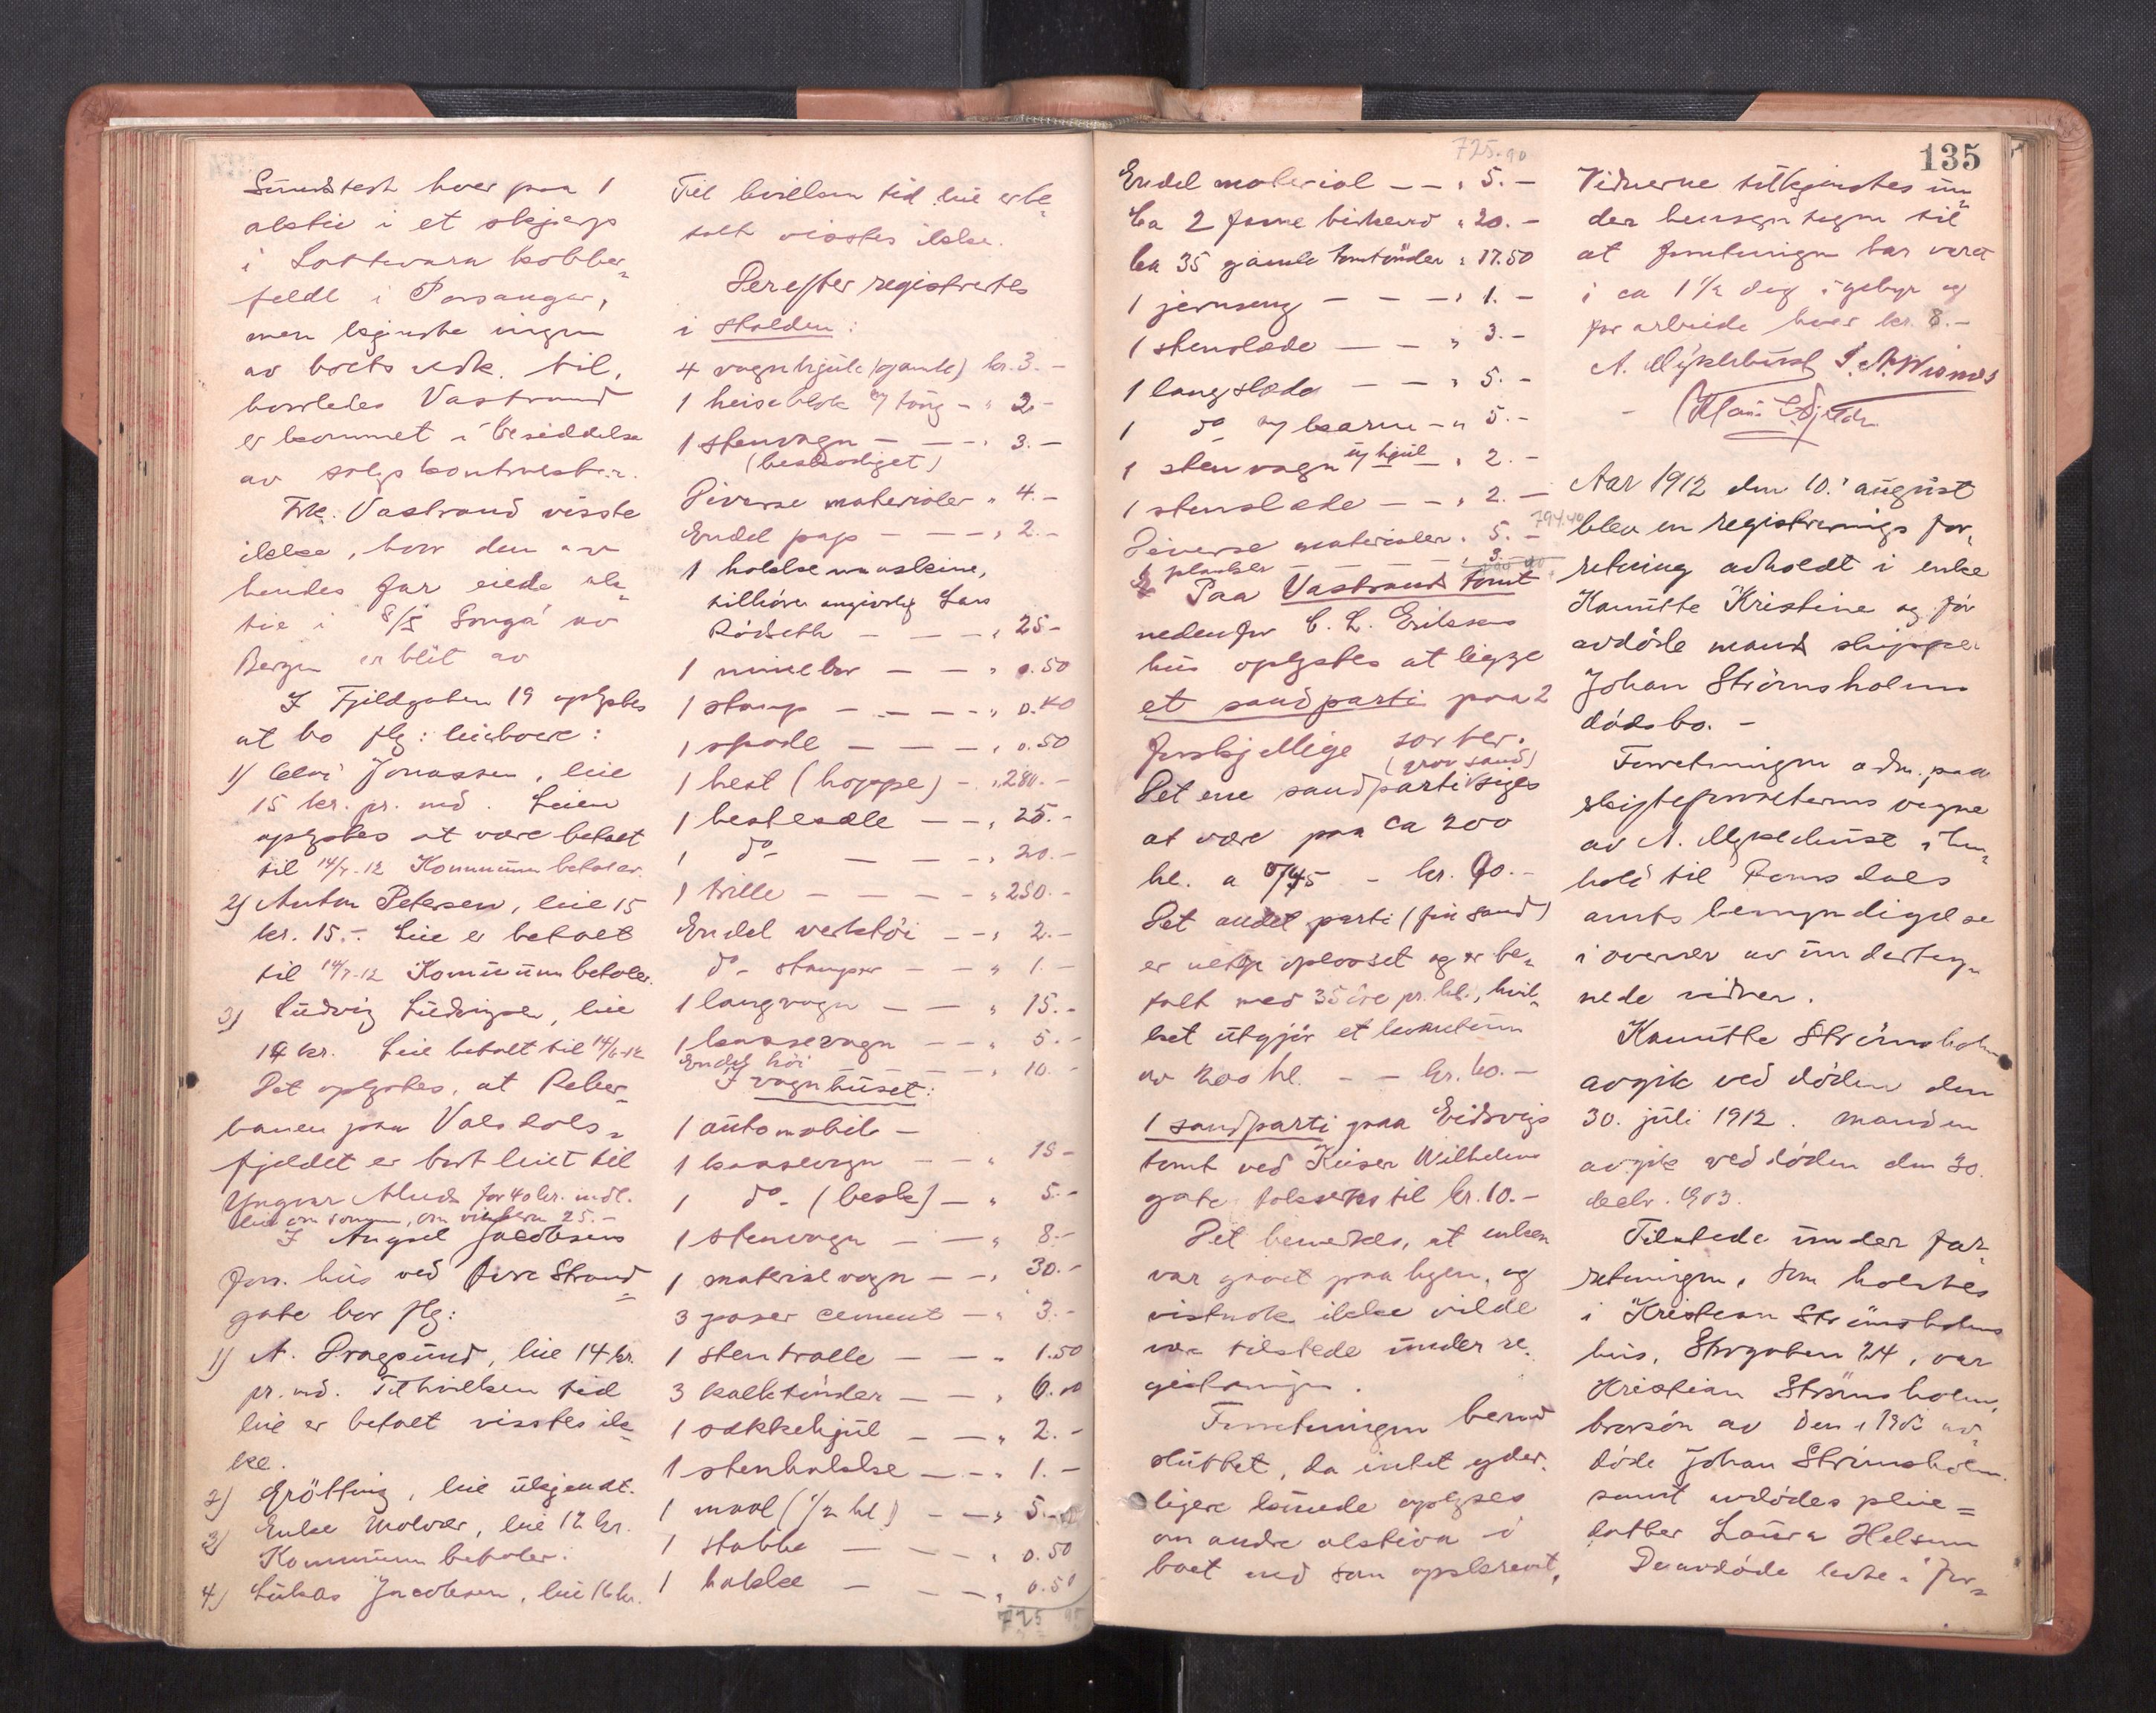 hver paa 1
aktie i et skjerp
i kobber=
feldt i Porsanger,
men kjendte ingen
av boets vedk. til,
hvorledes Vastrand
er kommet i besiddelse
av kontrakten.
Frk. Vastrand visste
ikke, hvor den av
hendes far eiede ak=
tie i S/S Songa av
Bergen er blit av
I Fjeldgaten 19 oplystes
at bo flg: leieboere:
1) Jonassen, leie
15 kr. pr. md. Leien
oplystes at være betalt
til 14/7-12 Kommunen betaler.
2) Anton Petersen, leie 15
kr. 15.- Leie er betalt
til 14/7-12 Kommunen betaler.
3) Ludvig Ludvigsen, leie
14 kr. Leie betalt til 14/6-12
Det oplystes, at Reber=
banen paa Volsdals=
fjeldet er bortleiet til
Yngvar for 40 kr. mdl.
leie om sommeren, om vinteren 25.-
I Jacobsens
Forr. hus ved Strand=
gate bor flg:
1) A. Dragsund, leie 14 kr.
pr. md. Til hvilken tid
leie er betalt visstes ik=
ke.
2) Grötting, leie ukjendt.
3) Enke Molvær, leie 12 kr.
Kommunen betaler.
4) Lukas Jacobsen, leie 16 kr.
Til hvilken tid leie er be=
talt visstes ikke.
Derefter registrertes
i stalden:
4 vagnhjule (gamle) kr. 3.-
1 heiseblok m/ taug - " 2.-
1 stenvagn - - " 3.-
(beskadiget)
Diverse materialer " 4.-
Endel pap - - - " 2.-
1 hakkelsemaskine,
tilhörer angivelig Lars
Rödseth - - - " 25-
1 minebor - - " 0.50
1 stamp - - - " 0.40
1 spade - - - " 0.50
1 hest (hoppe) - " 280.-
1 hestesæle - - " 25.-
1 do - - - " 20.-
1 trille - - - " 250.-
Endel verktöi - - " 2.-
do - stamper - - " 1.-
1 langvagn - - " 15.-
1 kassevagn - - " 5.-
Endel höi - - - " 10.-
I vagnhuset:
1 automobil -
1 kassevagn - - " 15-
1 do - (besk) - " 5.-
1 stenvagn - - " 8.-
1 materialvagn - - " 30.-
3 poser cement - " 3.-
1 stentralle - - " 1.50
3 kalktönder - - " 6.00
1 sækkehjul - - " 2.-
1 stenhakke - - " 1.-
1 maal (1/2 hl) - - " 5.-
1 stabbe - - - " 0.50
1 hakke - - - " 0.50
725 90
725.90
Endel material - - " 5.-
Ca 2 favne birkeved " 20.-
Ca 35 gamle tomtönder " 17.50
1 jernseng - - - " 1.-
1 stenslæde - - " 3.-
1 langslæde - - " 5.-
1 do m/ karm - " 5.-
1 stenvagn u/ hjul " 2.-
1 stenslæde - - " 2.-
Diverse materialer " 5.-
794.40
planker 3
Paa Vastrands tomt
nedenfor C. L. Eriksens
hus oplystes at ligge
et sandparti paa 2
forskjellige sorter.
(grov sand)
Det ene sandparti siges
at være paa ca 200
hl. a 0/45 - kr. 90.-
Det andet parti (fin sand)
er oplosset og er be=
talt med 35 öre pr. hl., hvil=
ket utgjör et kvantum
av 200 hl. - - kr. 60.-
1 sandparti paa Eidsvigs
tomt ved Keiser Wilhelms
gate til kr. 10.-
Det bemerkes, at enken
var paa byen, og
vistnok ikke vilde
være tilstede under re=
gistreringen.
Forretningen herved
sluttet, da intet yder=
ligere kunde oplyses
om andre aktiva i
boet end som opskrevet,
135
Vidnerne tilkjendtes un=
der hensyntagen til
at forretningen har varet
i ca 1 1/2 dag i gebyr og
for arbeide hver kr. 8.-
A. Myklebust
Aar 1912 den 10. august
blev en registrerings for=
retning avholdt i enke
Kamitte Kristine og för
avdöde mand skipper
Johan Strömsholms
dödsbo. -
Forretningen adm. paa
skifteforvalterens vegne
av A. Myklebust i hen=
hold til Romsdals
amts bemyndigelse
i overvær av underteg=
nede vidner.
Kamitte Strömsholm
avgik ved döden den
30. juli 1912. Manden
avgik ved döden den 30.
decbr. 1903.
Tilstede under for=
retningen, som holdtes
i Kristian Strömsholms
hus, Storgaten 24, var
Kristian Strömsholm,
brorsön av den i 1903 av=
döde Johan Strömsholm.
samt avdödes pleie=
datter Laura Helsem
De avdöde levde i for=